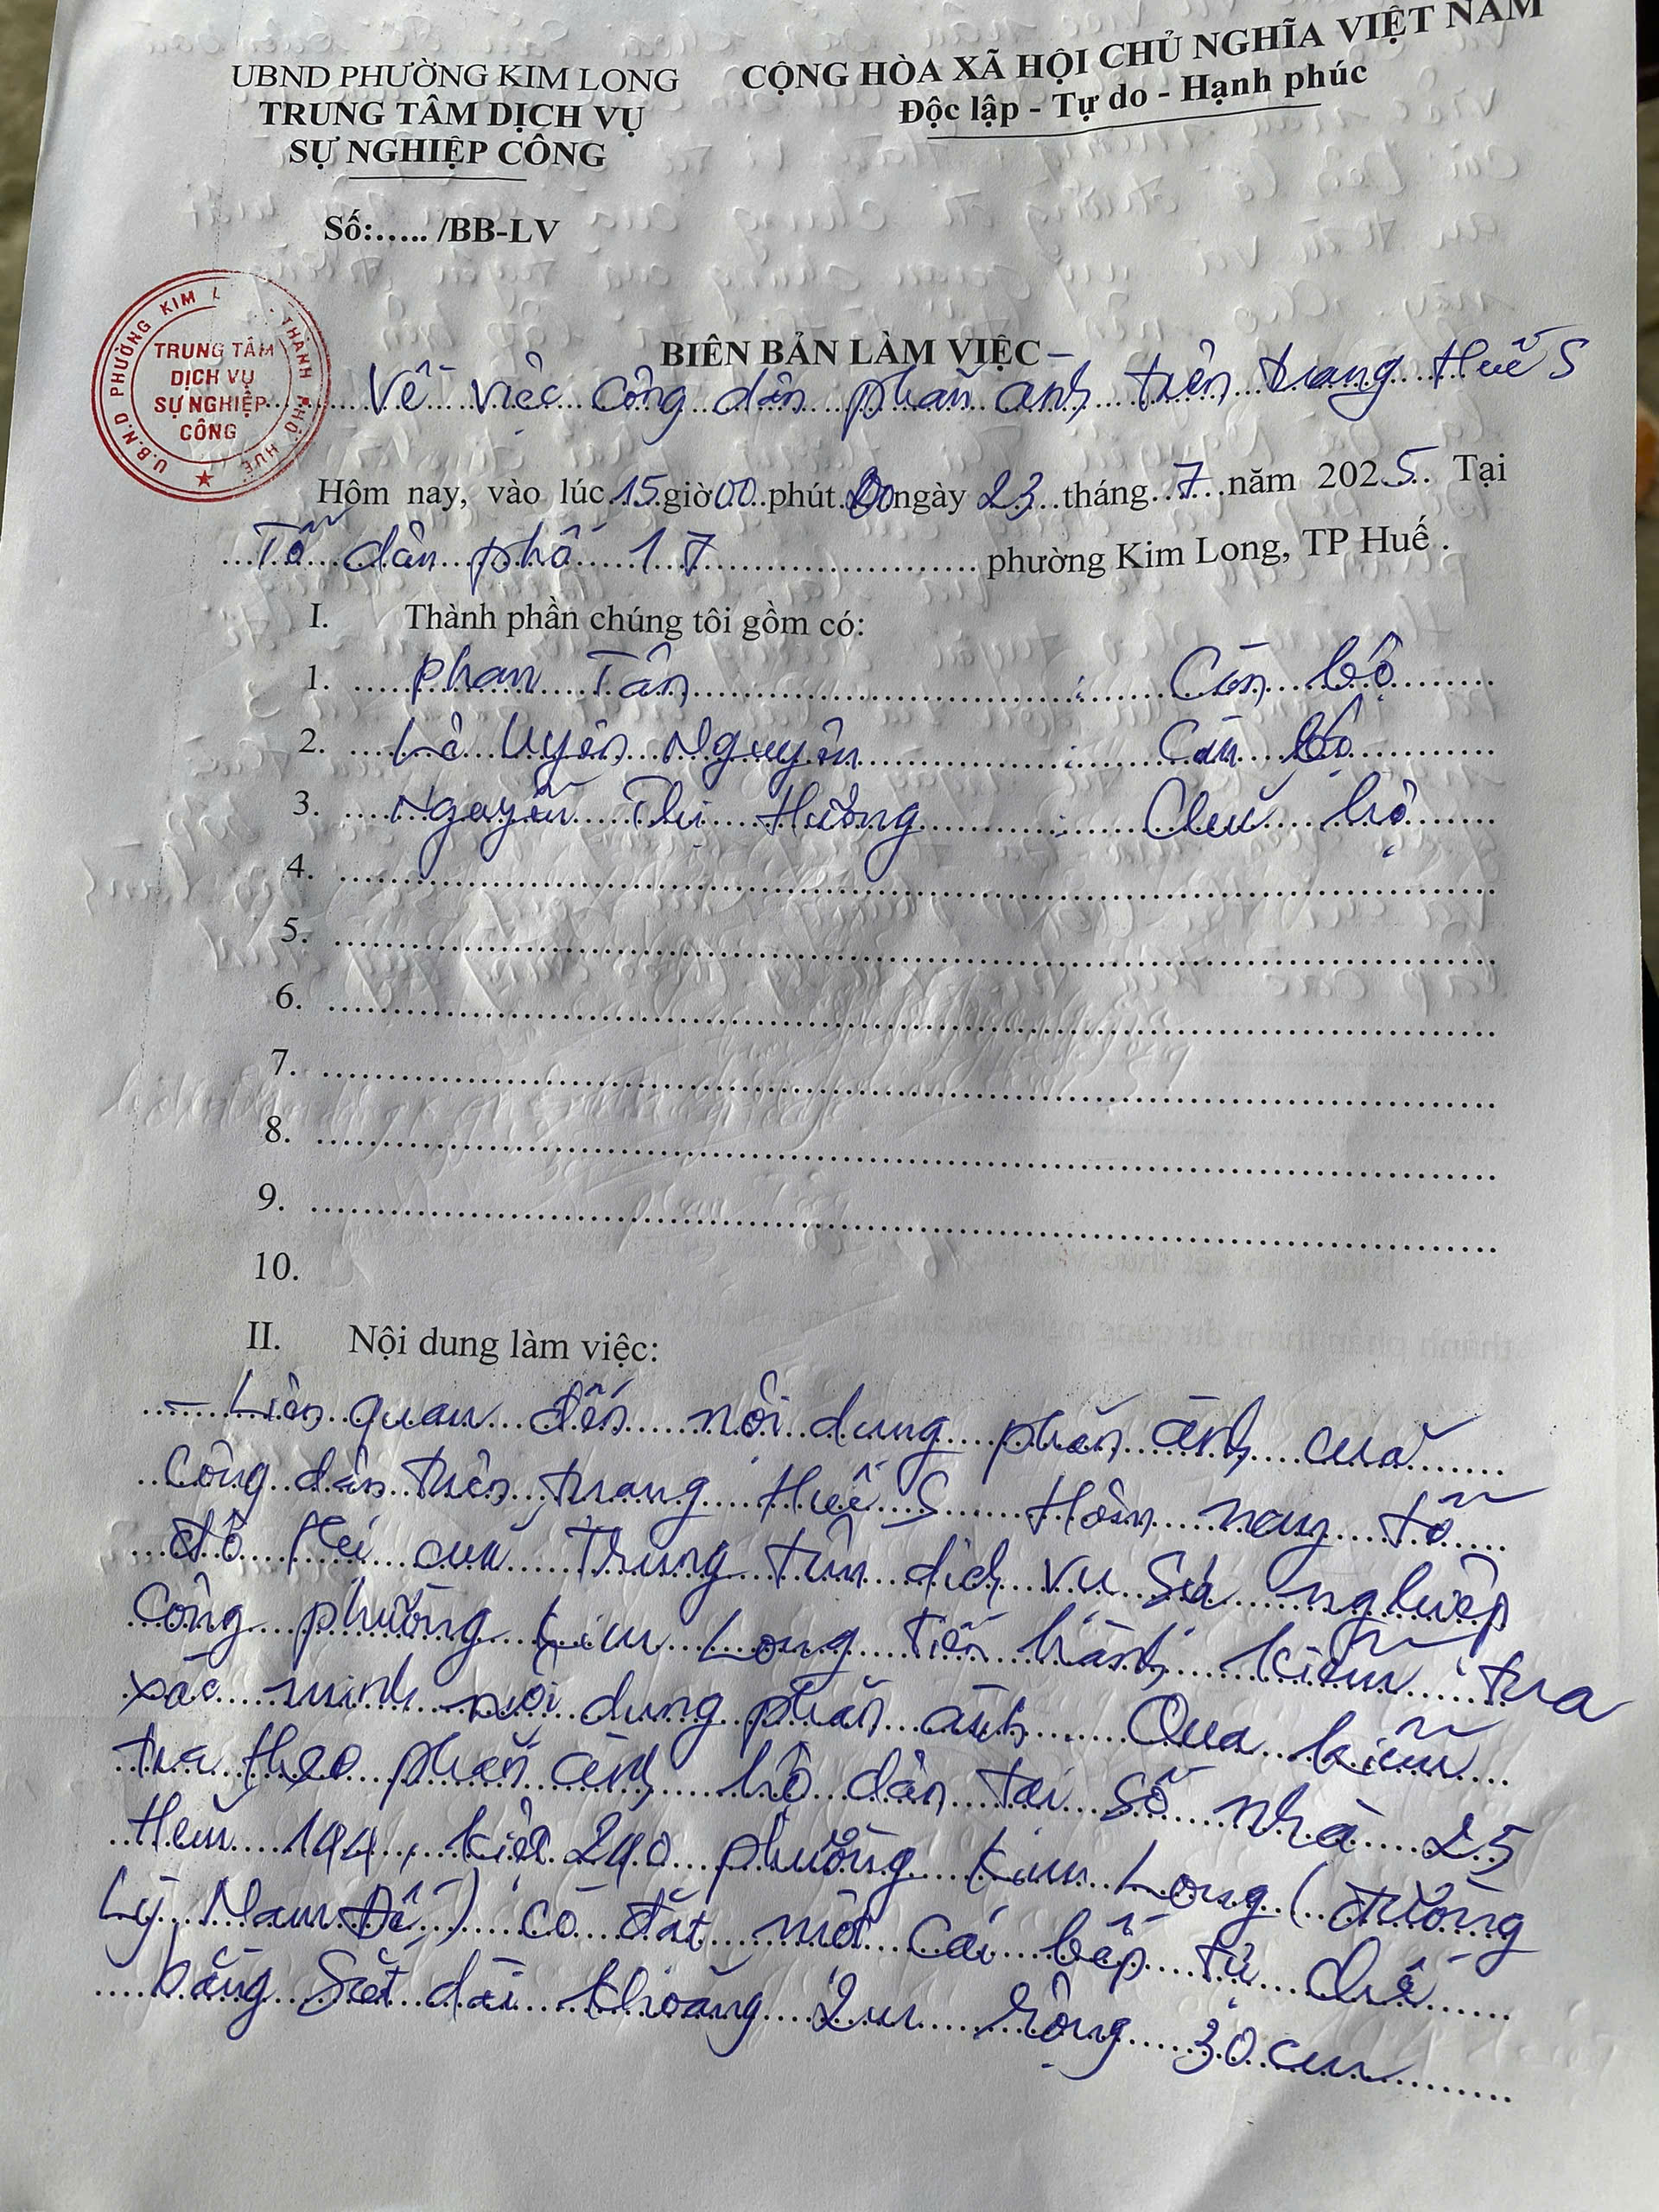 UBND PHƯỜNG KIM LONG
TRUNG TÂM DỊCH VỤ
SỰ NGHIỆP CÔNG
CỘNG HÒA XÃ HỘI CHỦ NGHĨA VIỆT NAM
Độc lập - Tự do - Hạnh phúc
Số:..... /BB-LV
U.B.N.D PHƯỜNG KIM L THÀNH PHỐ HUẾ
TRUNG TÂM
DỊCH VỤ
SỰ NGHIỆP
CÔNG
BIÊN BẢN LÀM VIỆC
Về việc công dân phản ánh trên trang Huế S
Hôm nay, vào lúc 15 giờ 00 phút ngày 23 tháng 7 năm 2025. Tại
Tổ dân phố 17 phường Kim Long, TP Huế.
I. Thành phần chúng tôi gồm có:
1. Phan Tân : Cán bộ
2. Lê Uyên Nguyên : Cán bộ
3. Nguyễn Thị Hường : Chủ hộ
4.
5.
6.
7.
8.
9.
10.
II. Nội dung làm việc:
- Liên quan đến nội dung phản ánh của
công dân trên trang Huế S Hôm nay tổ
đô thị của Trung tâm dịch vụ sự nghiệp
công phường Kim Long tiến hành kiểm tra
xác minh nội dung phản ánh. Qua kiểm
tra theo phản ánh hộ dân tại số nhà 25
Hẻm 194, kiệt 290 phường Kim Long (đường
Lý Nam Đế) có đặt một cái bấp từ chế
bằng Sắt dài khoảng 2m rộng 30cm